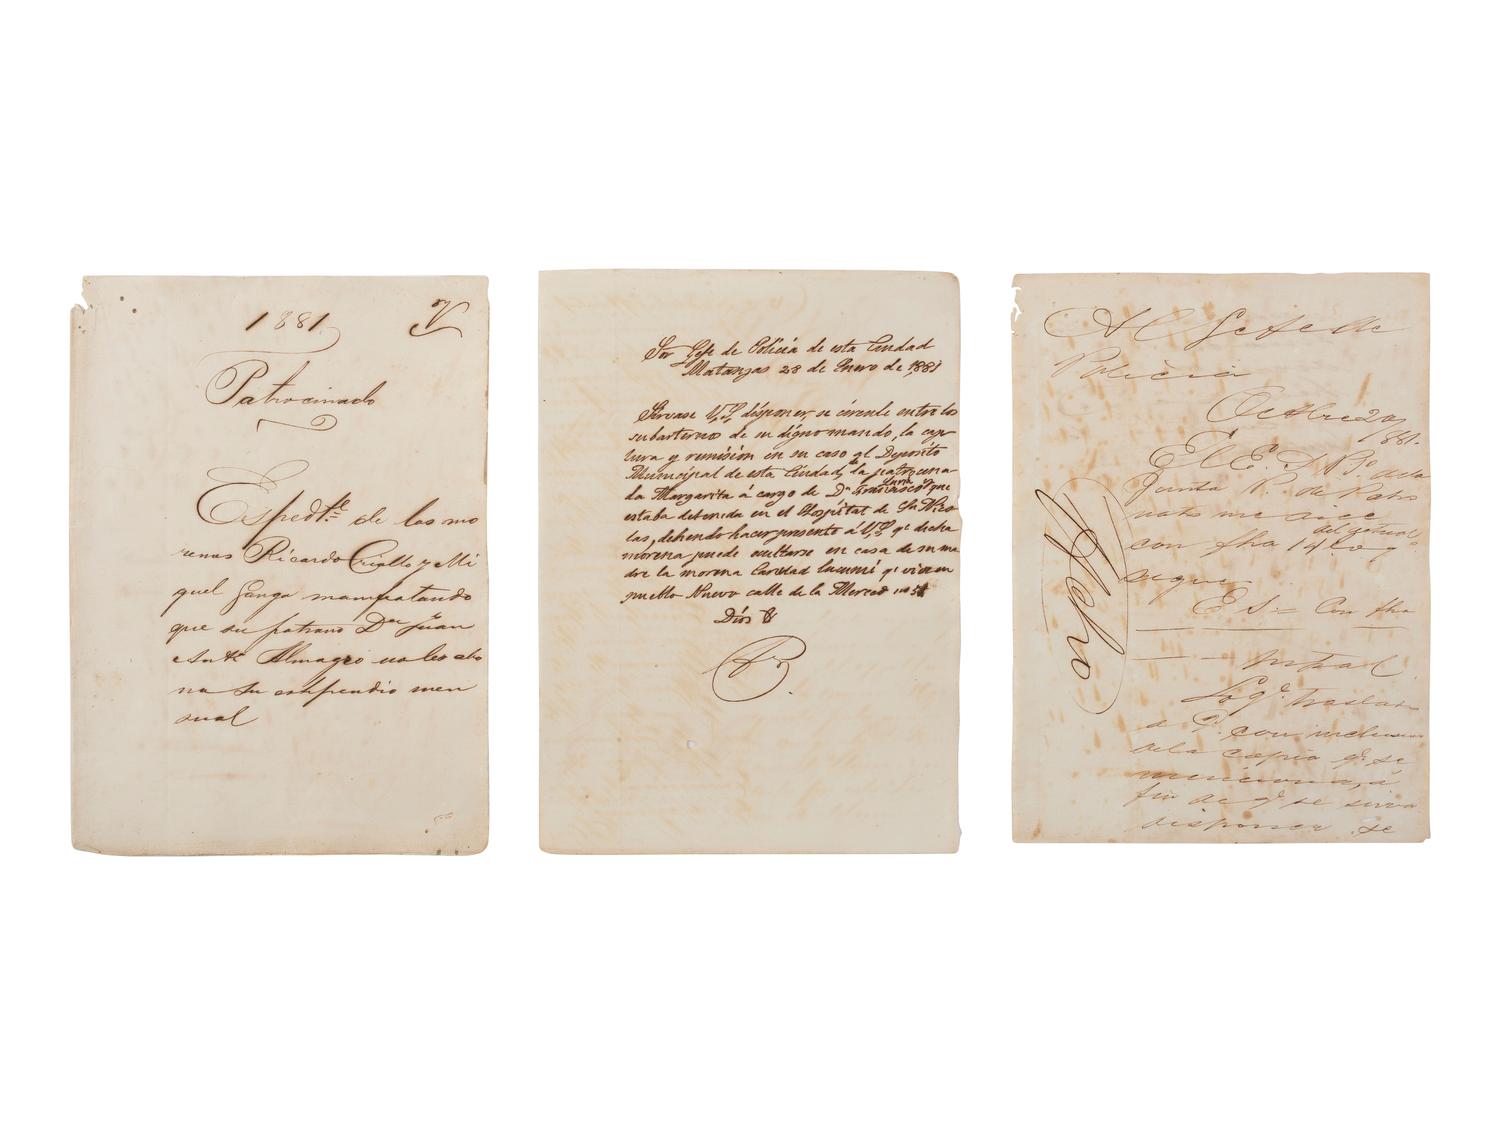 1881
Patrocinado
Espedte de los mo
renos Ricardo Criollo y Mi
quel Ganga manifestando
que su patrono Dn Juan
Antº Almagro no les abo
na su estipendio men
sual
Sor Gefe de Policia de esta Ciudad
Matanzas 28 de Enero de 1881
Sirvase V.S. disponer, se circule entre los
subarternos de su digno mando, la cap
tura y remisión en su caso al Deposito
Municipal de esta Ciudad, de la patrocina
da Margarita á cargo de Dn Francisco Luna que
estaba detenida en el Hospital de Sn Nico
las, debiendo hacer presente á V.S. qe dicha
morena puede ocultarse en casa de su ma
dre la morena Caridad lucumí qe vive en
pueblo Nuevo calle de la Merced no 54
Dios &
Al Gefe de
Policia
Octbre 29
/881.
El E. S. Pe de la
Junta P. de Patro
nato me dice
con fha 14 del actual lo q
sigue
E S:= Con fha
Lo qe traslado
a V. con inclusion
de la copia qe se
menciona, á
fin de qe se sirva
disponer se
Fecho